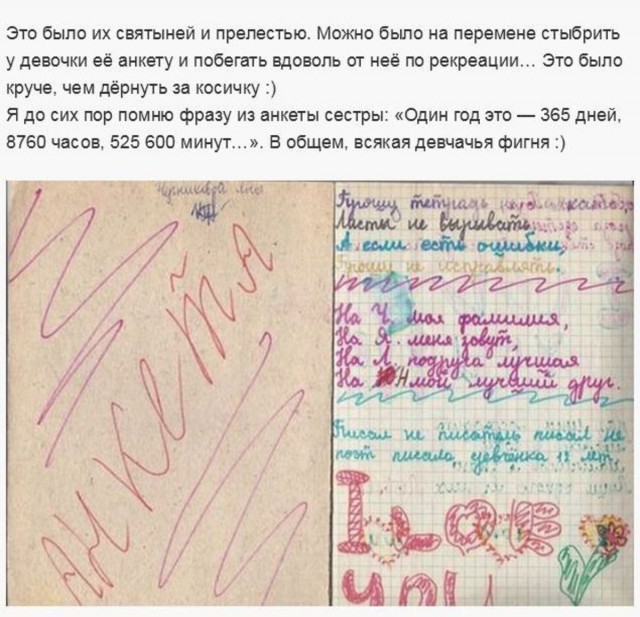 Это было их святыней и прелестью. Можно было на перемене стыбрить
у девочки её анкету и побегать вдоволь от неё по рекреации... Это было
круче, чем дёрнуть за косичку :)
Я до сих пор помню фразу из анкеты сестры: «Один год это — 365 дней,
8760 часов, 525 600 минут...». В общем, всякая девчачья фигня :)
АНКЕТА
Прошу тетрадь не
Листы не вырывать
А если есть ошибки,
Прошу не исправлять.
На Ч. моя фамилия,
На Я. меня зовут,
На Л. подруга лучшая
На Н мой лучший друг.
Писал не писатель писал не
поэт писала девчёнка 12 лет
I LOVE
YOU